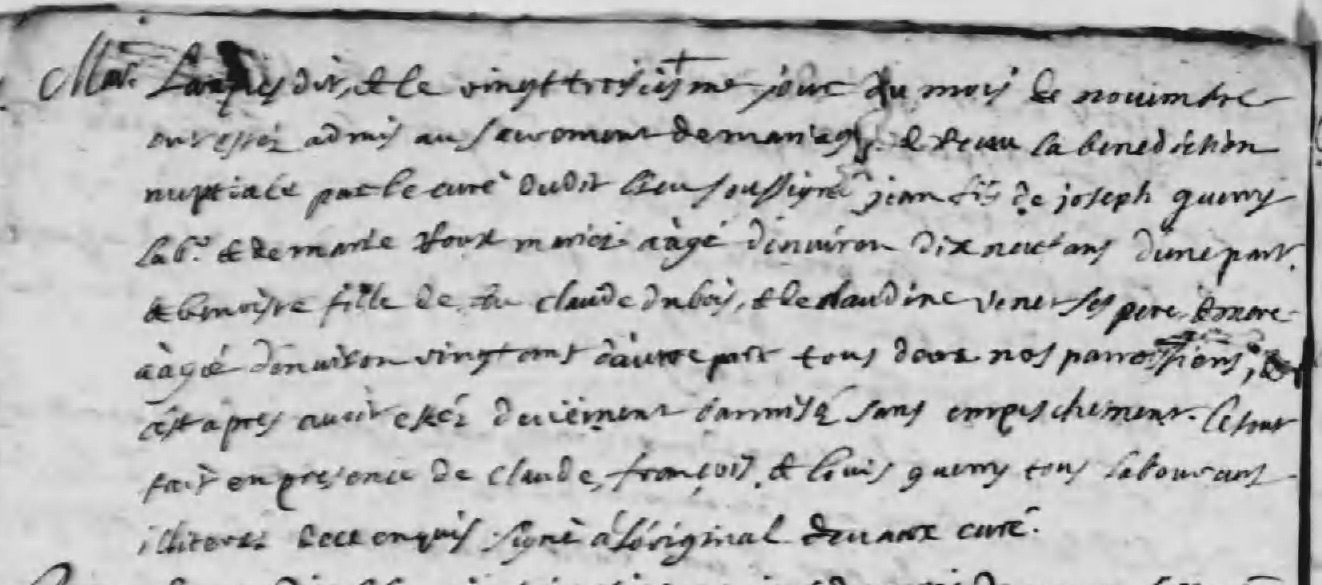 Mar. L'an dit, et le vingt troisiesme jour du mois de novembre
ont estéz admis au sacrement de mariage et receu la benediction
nuptiale par le curé dudit lieu soussigné jean fils de joseph guerry
lab.r et de marie roux mariez aàgé d'environ dix neuf ans d'une part.
et benoiste fille de feu claude dubois, et de claudine venet ses pere et mere
aàgée d'environ vingt ans d'autre part tous deux nos parroissiens,
est apres avoir estéz deuëment sans empeschement. le tout
fait en presence de claude, françois, et louis guerry tous laboureurs
illiterez de ce enquis signé à l'original curé.